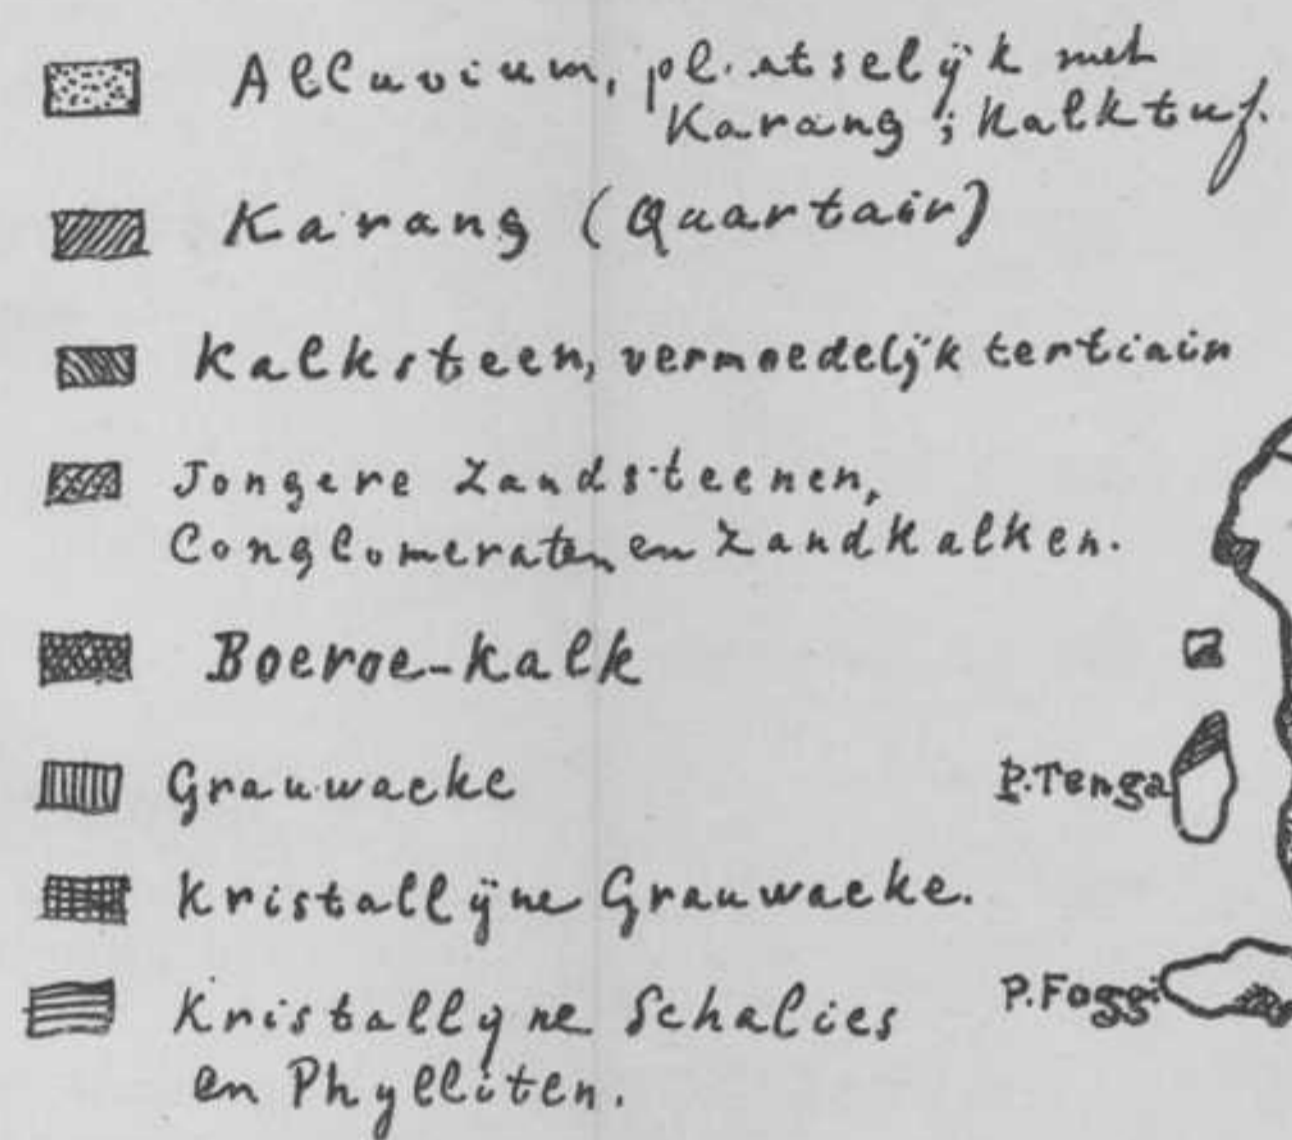 Alluvium, plaatselijk met
Karang; Kalktuf.
Karang (Quartair)
Kalksteen, vermoedelijk tertiair
Jongere Zandsteenen,
Conglomeraten en Zandkalken.
Boeroe-kalk
Grauwacke
P. Tenga
Kristallijne Grauwacke.
P. Foggi
Kristallyne Schalies
en Phylliten.